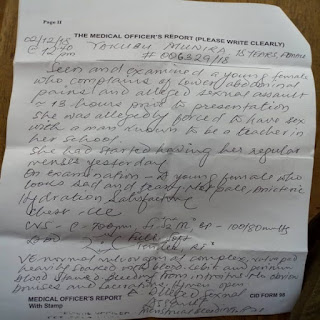 Page II
THE MEDICAL OFFICER'S REPORT (PLEASE WRITE CLEARLY)
02/12/18 YAKUBU MUNIRA 15 YEARS FEMALE
@ 12:40 # 006329/18
Seen and examined a young female
who complains of lower abdominal
pains and alleged sexual assault
~ 13 hours prior to presentation
She was allegedly forced to have sex
with a man known to be a teacher in
her school.
She had started having her regular
menses yesterday
On examination - A young female who
looks sad and teary, Not pale, anicteric
Hydration Satisfactory
Chest -
CVS - BP - 100/80mmHg
Full Soft
VE normal vulvovaginal complex, vulva pad
heavily soaked with blood, and perineum
blood stained. Bleeding from introitus. No obvious
bruises and lacerations. Hymen open
alleged Sexual
Assault
MEDICAL OFFICER'S REPORT CID FORM 98
With Stamp